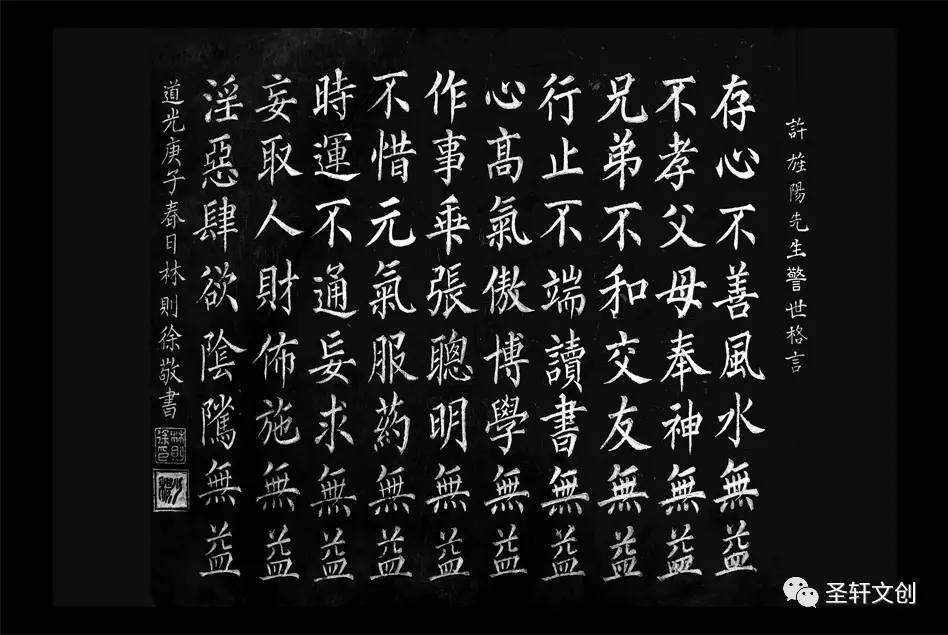 許旌陽先生警世格言
存心不善風水無益
不孝父母奉神無益
兄弟不和交友無益
行止不端讀書無益
心髙氣傲博學無益
作事乖張聰明無益
不惜元氣服葯無益
時運不通妄求無益
妄取人財佈施無益
淫惡肆欲陰騭無益
道光庚子春日林則徐敬書
林則徐印
圣轩文创